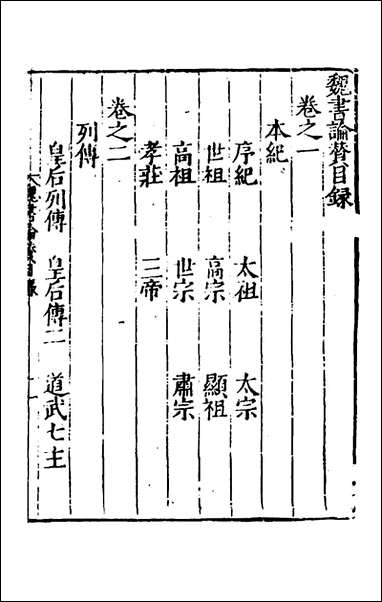 魏書論贊目錄
卷之一
本紀
序紀 太祖 太宗
世祖 高宗 顯祖
高祖 世宗 肅宗
孝莊 三帝
卷之二
列傳
皇后列傳 皇后傳二 道武七王
魏書論贊目錄